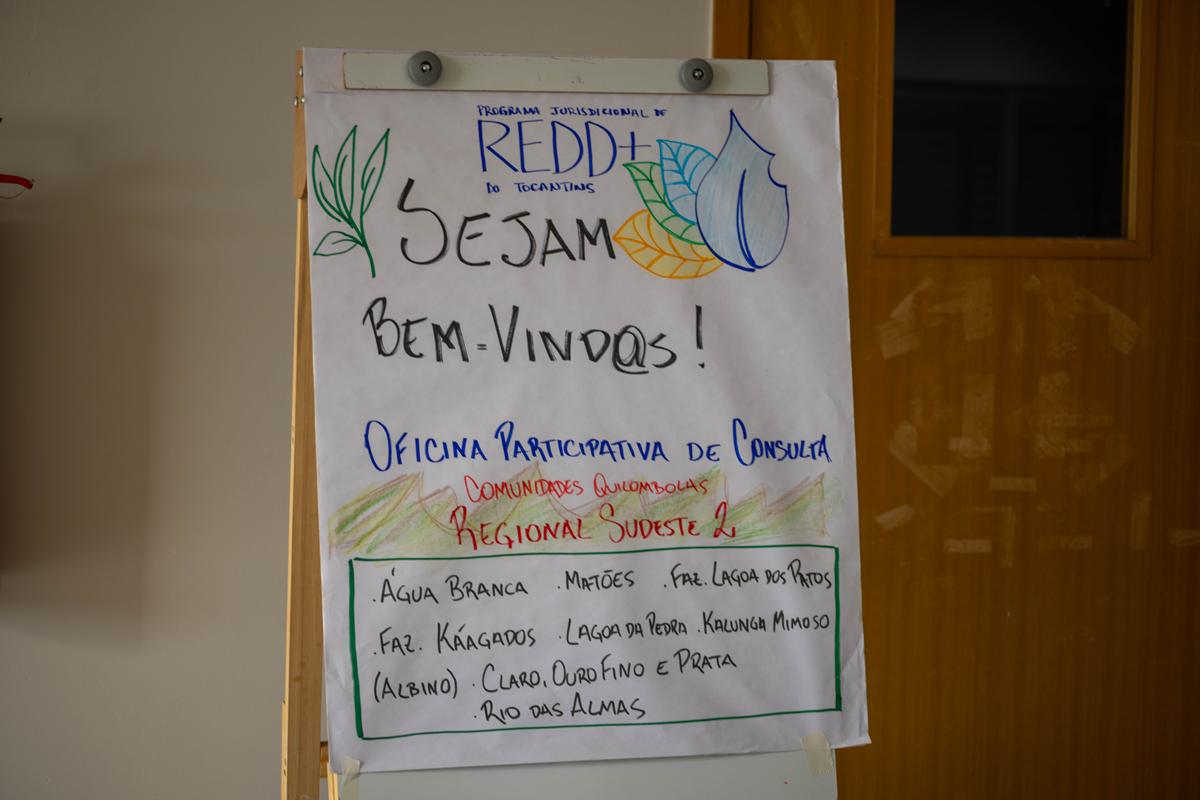 PROGRAMA JURISDICIONAL DE
REDD+
DO TOCANTINS
SEJAM
BEM-VIND@S!
OFICINA PARTICIPATIVA DE CONSULTA
COMUNIDADES QUILOMBOLAS
REGIONAL SUDESTE 2
.ÁGUA BRANCA .MATÕES .FAZ. LAGOA DOS PATOS
.FAZ. KÁAGADOS .LAGOA DA PEDRA .KALUNGA MIMOSO
(ALBINO) .CLARO, OURO FINO E PRATA
.RIO DAS ALMAS